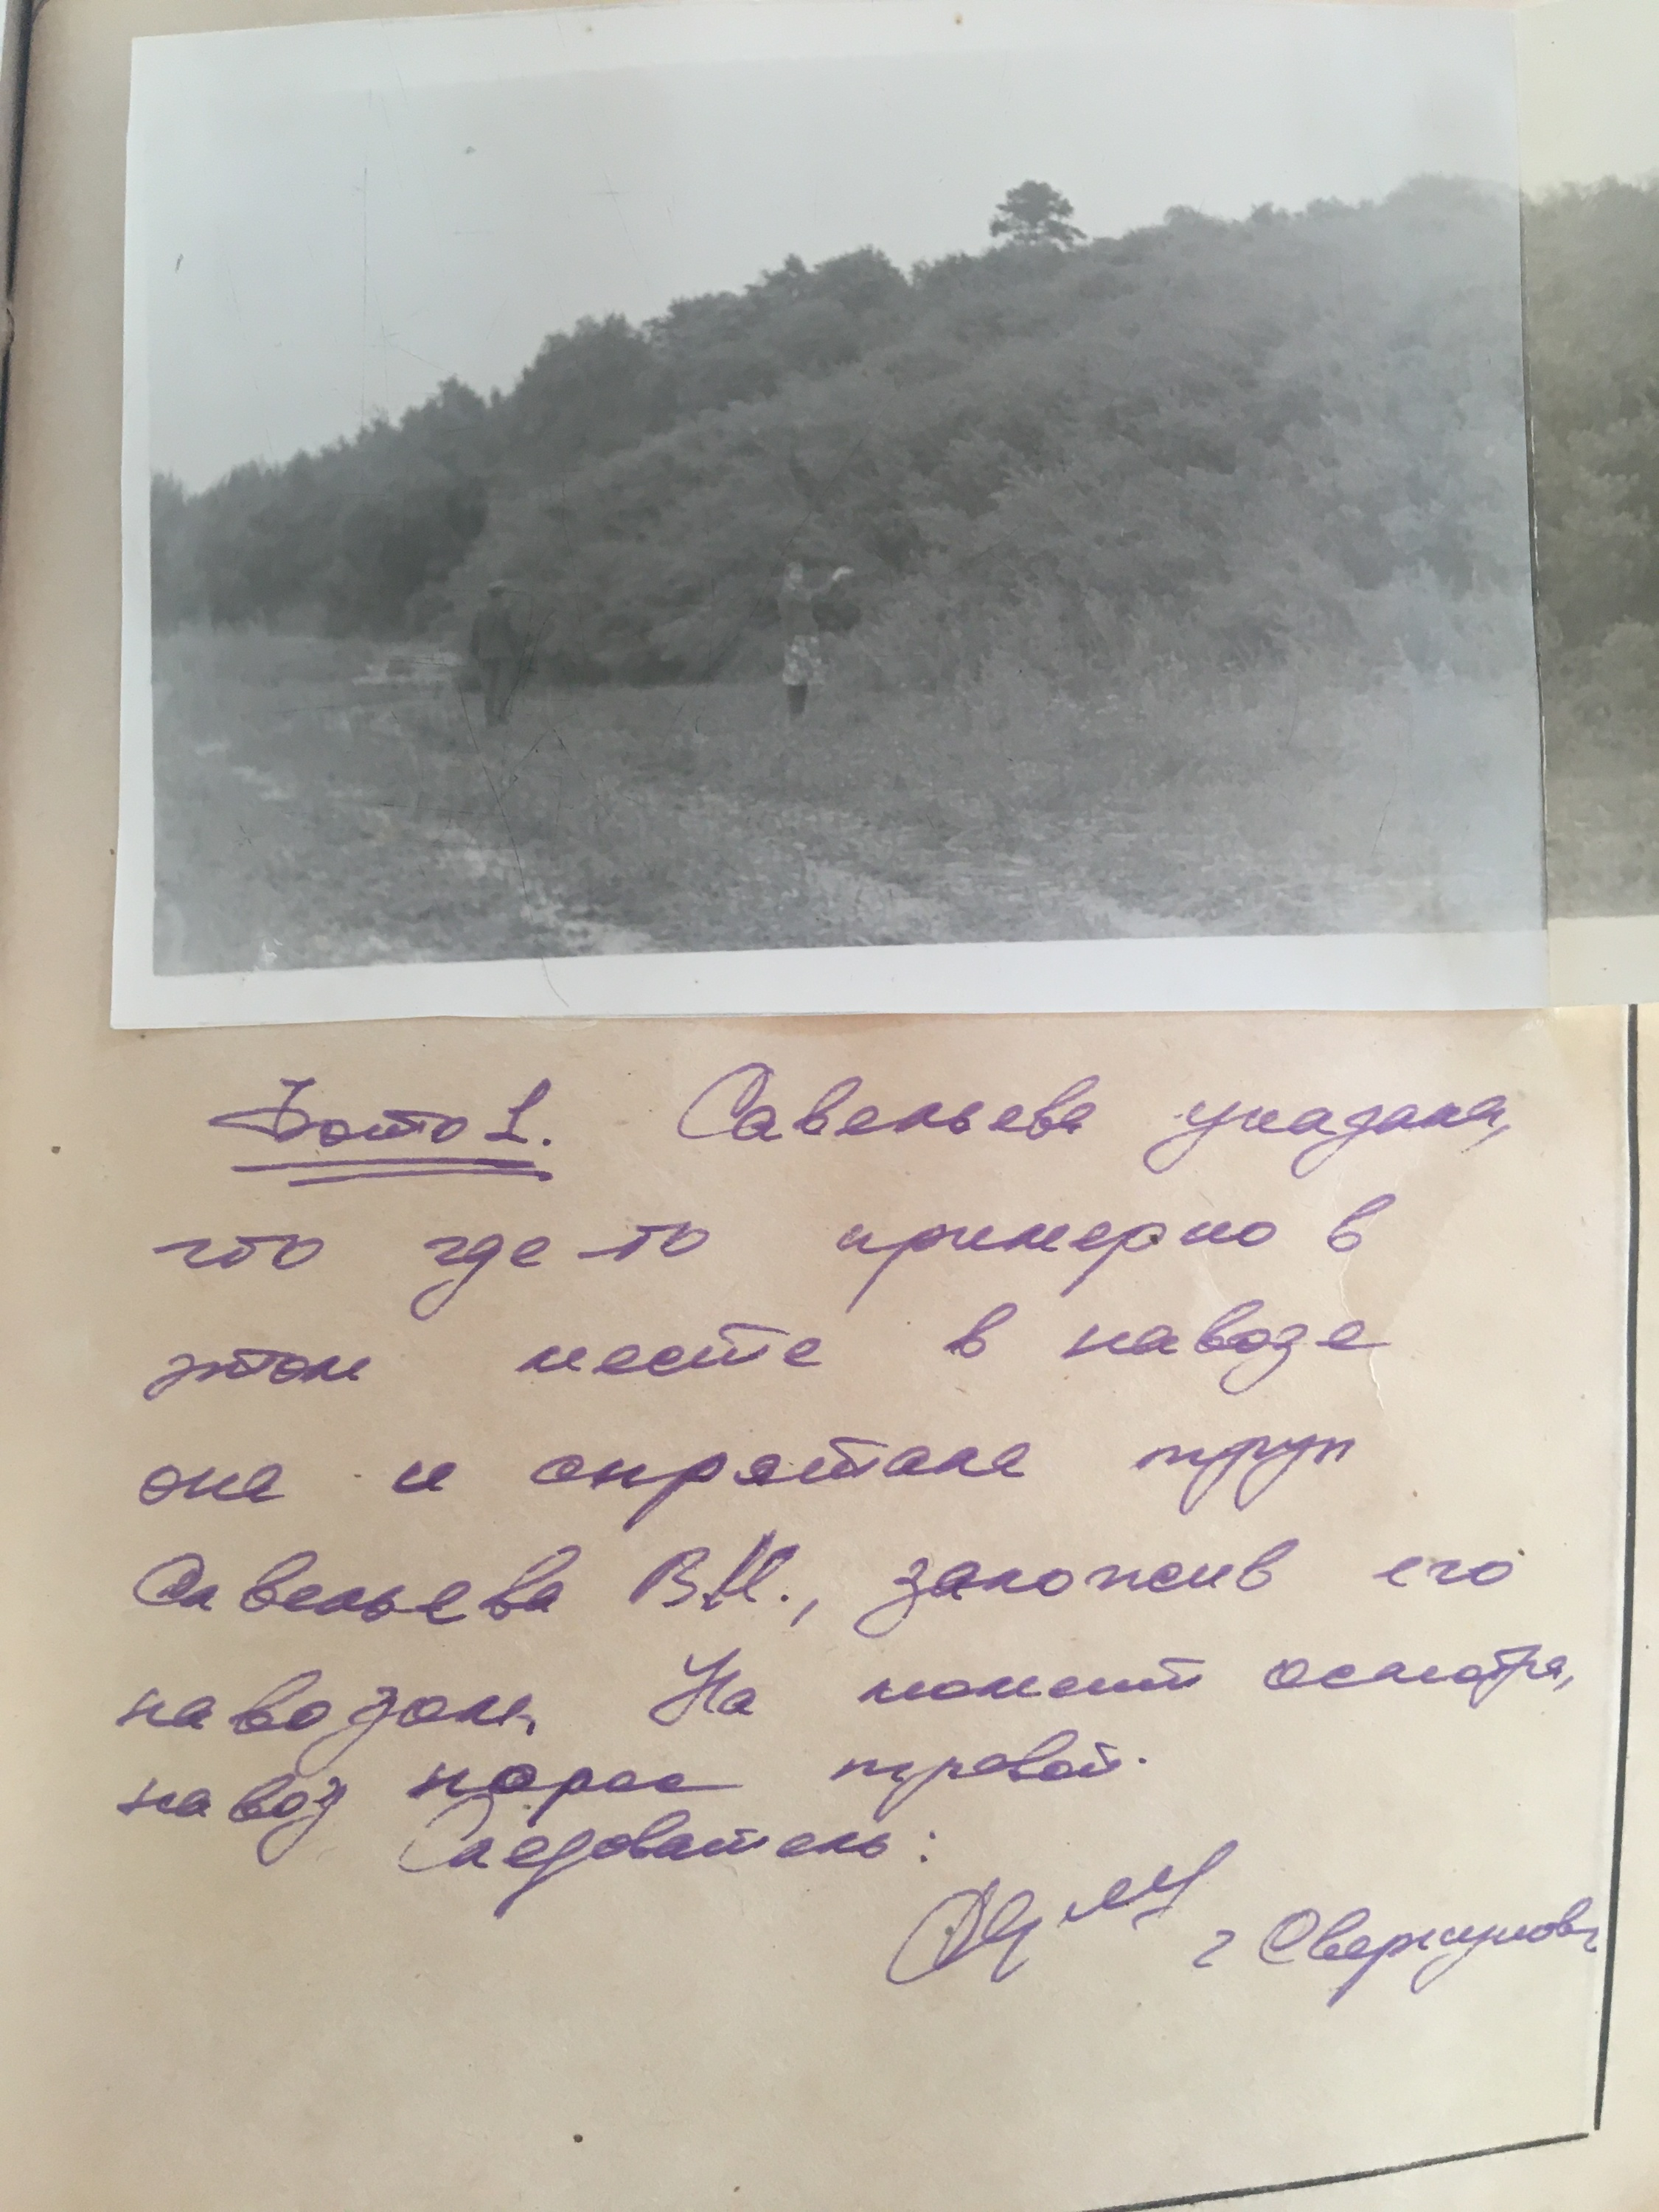 Фото 1. Савельева указала,
что где-то примерно в
этом месте в навозе
она и спрятала труп
Савельева В.И., заложив его
навозом. На момент осмотра,
навоз порос травой.
Следователь: